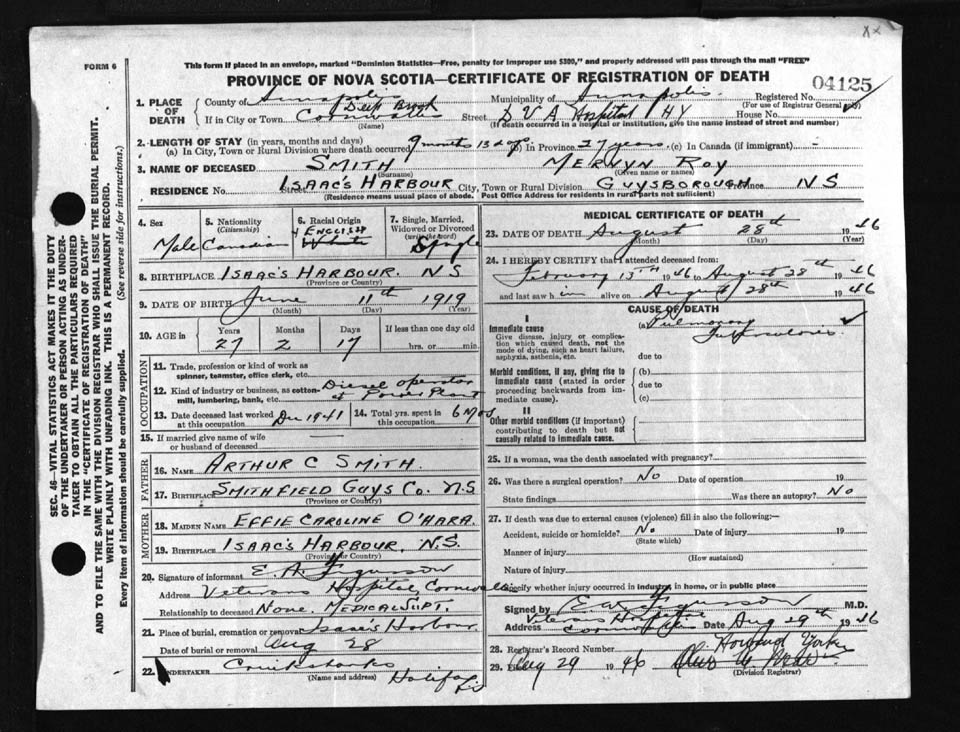 FORM 6
This form if placed in an envelope, marked "Dominion Statistics—Free, penalty for improper use $300," and properly addressed will pass through the mail "FREE"
PROVINCE OF NOVA SCOTIA—CERTIFICATE OF REGISTRATION OF DEATH
04125
1. PLACE OF DEATH County of Annapolis Municipality of Annapolis Registered No.
(For use of Registrar General only)
Deep Brook
If in City or Town Cornwallis Street D V A Hospital HY House No.
(Name) (If death occurred in a hospital or institution, give the name instead of street and number)
2. LENGTH OF STAY (in years, months and days)
(a) In City, Town or Rural Division where death occurred 9 months 13 dys (b) In Province 27 years (c) In Canada (if immigrant) -
3. NAME OF DECEASED SMITH MERVYN ROY
(Surname) (Given name or names)
RESIDENCE No. Street ISAAC'S HARBOUR City, Town or Rural Division GUYSBOROUGH Province NS
(Residence means usual place of abode. Post Office Address for residents in rural parts not sufficient)
4. Sex Male
5. Nationality (Citizenship) Canadian
6. Racial Origin ENGLISH White
7. Single, Married, Widowed or Divorced (write the word) Single
8. BIRTHPLACE ISAAC'S HARBOUR. NS
(Province or Country)
9. DATE OF BIRTH June 11th 1919
(Month) (Day) (Year)
10. AGE in Years Months Days If less than one day old
27 2 17 hrs. or min.
OCCUPATION
11. Trade, profession or kind of work as spinner, teamster, office clerk, etc.
12. Kind of industry or business, as cotton-mill, lumbering, bank, etc. Diesel operator at Power Plant
13. Date deceased last worked at this occupation Dec 1941
14. Total yrs. spent in this occupation 6 Mos
15. If married give name of wife or husband of deceased
FATHER
16. NAME ARTHUR C SMITH.
17. BIRTHPLACE SMITHFIELD GUYS CO. N.S.
(Province or Country)
MOTHER
18. MAIDEN NAME EFFIE CAROLINE O'HARA.
19. BIRTHPLACE ISAAC'S HARBOUR, N.S.
(Province or Country)
20. Signature of informant E. A. Fergusson
Address Veterans Hospital, Cornwallis
Relationship to deceased None. MEDICAL SUPT.
21. Place of burial, cremation or removal Isaac's Harbour
Date of burial or removal Aug 28
22. UNDERTAKER Cruikshanks Halifax
(Name and address)
MEDICAL CERTIFICATE OF DEATH
23. DATE OF DEATH August 28th 1946
(Month) (Day) (Year)
24. I HEREBY CERTIFY that I attended deceased from:
February 13TH 1946 to August 28th 1946
and last saw him alive on August 28th 1946
CAUSE OF DEATH
I
Immediate cause
Give disease, injury or complication which caused death, not the mode of dying, such as heart failure, asphyxia, asthenia, etc.
(a) Pulmonary Tuberculosis
due to
Morbid conditions, if any, giving rise to immediate cause (stated in order proceeding backwards from immediate cause).
(b)
due to
(c)
II
Other morbid conditions (if important) contributing to death but not causally related to immediate cause.
25. If a woman, was the death associated with pregnancy?
26. Was there a surgical operation? No Date of operation 19
State findings Was there an autopsy? No
27. If death was due to external causes (violence) fill in also the following:—
Accident, suicide or homicide? No Date of injury 19
(State which)
Manner of injury
(How sustained)
Nature of injury
Specify whether injury occurred in industry, in home, or in public place
Signed by E. A. Fergusson M.D.
Address Veterans Hospital Cornwallis Date Aug 29th 1946
28. Registrar's Record Number
29. Filed Aug 29 1946 Howard Yorke
(Division Registrar)
SEC. 46—VITAL STATISTICS ACT MAKES IT THE DUTY
OF THE UNDERTAKER OR PERSON ACTING AS UNDER-
TAKER TO OBTAIN ALL THE PARTICULARS REQUIRED
IN THE "CERTIFICATE OF REGISTRATION OF DEATH"
AND TO FILE THE SAME WITH THE DIVISION REGISTRAR WHO SHALL ISSUE THE BURIAL PERMIT.
WRITE PLAINLY WITH UNFADING INK. THIS IS A PERMANENT RECORD.
Every item of information should be carefully supplied. (See reverse side for instructions.)